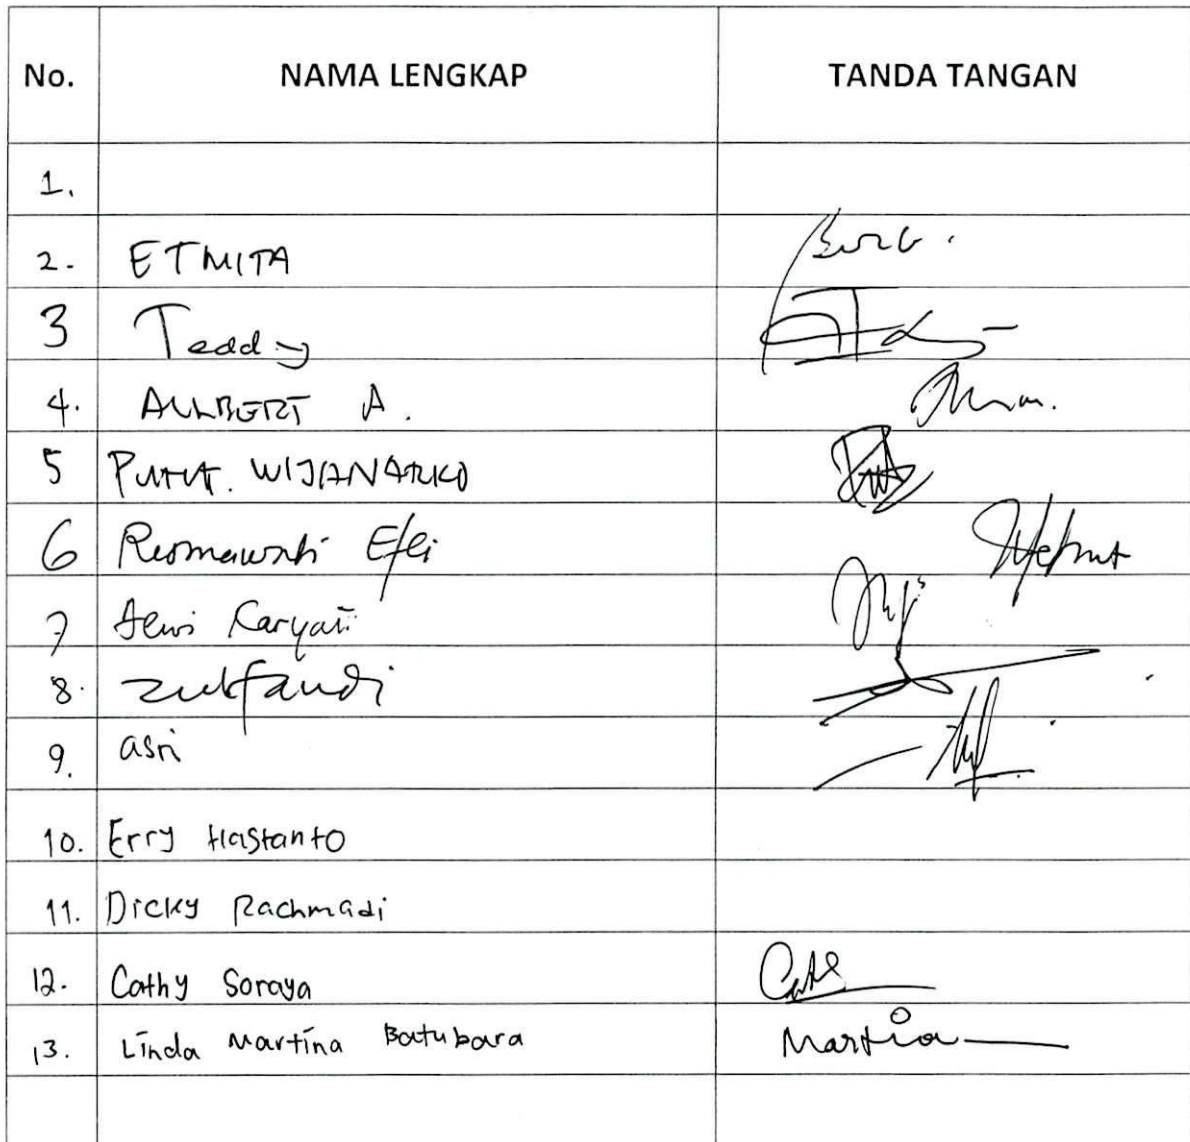 No. NAMA LENGKAP TANDA TANGAN
1.
2. ETMITA
3 Teddy
4. ALLBERT A.
5 PUTUT. WIJANARKO
6 Rosmawati Efli
7 Dewi Karyati
8. Zulfaudi
9. asri
10. Erry Hastanto
11. Dicky Rachmadi
12. Cathy Soraya
13. Linda Martina Batubara Martin